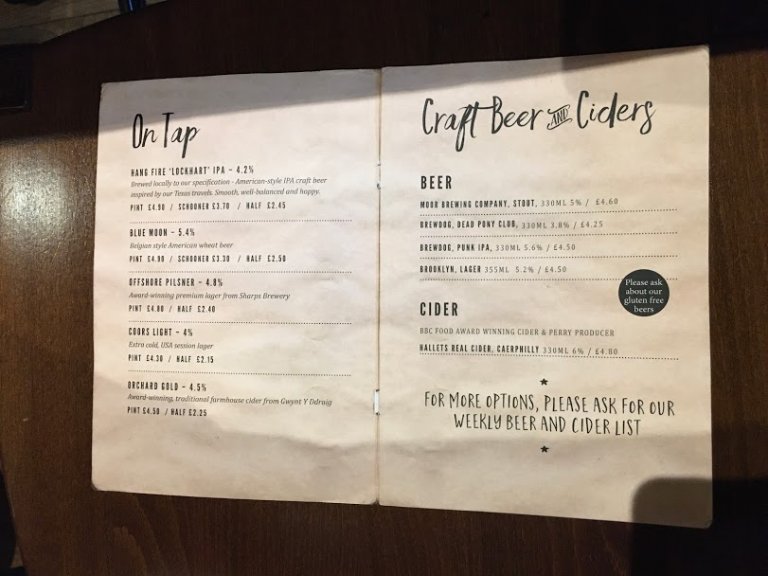 On Tap
HANG FIRE 'LOCKHART' IPA – 4.2%
Brewed locally to our specification - American-style IPA craft beer
inspired by our Texas travels. Smooth, well-balanced and hoppy.
PINT £4.90 / SCHOONER £3.70 / HALF £2.45
BLUE MOON – 5.4%
Belgian style American wheat beer
PINT £4.90 / SCHOONER £3.30 / HALF £2.50
OFFSHORE PILSNER – 4.8%
Award-winning premium lager from Sharps Brewery
PINT £4.80 / HALF £2.40
COORS LIGHT – 4%
Extra cold, USA session lager
PINT £4.30 / HALF £2.15
ORCHARD GOLD – 4.5%
Award-winning, traditional farmhouse cider from Gwynt Y Ddraig
PINT £4.50 / HALF £2.25
Craft Beer AND Ciders
BEER
MOOR BREWING COMPANY, STOUT, 330ML 5% / £4.60
BREWDOG, DEAD PONY CLUB, 330ML 3.8% / £4.25
BREWDOG, PUNK IPA, 330ML 5.6% / £4.50
BROOKLYN, LAGER 355ML 5.2% / £4.50
Please ask
about our
gluten free
beers
CIDER
BBC FOOD AWARD WINNING CIDER & PERRY PRODUCER
HALLETS REAL CIDER, CAERPHILLY 330ML 6% / £4.80
FOR MORE OPTIONS, PLEASE ASK FOR OUR
WEEKLY BEER AND CIDER LIST